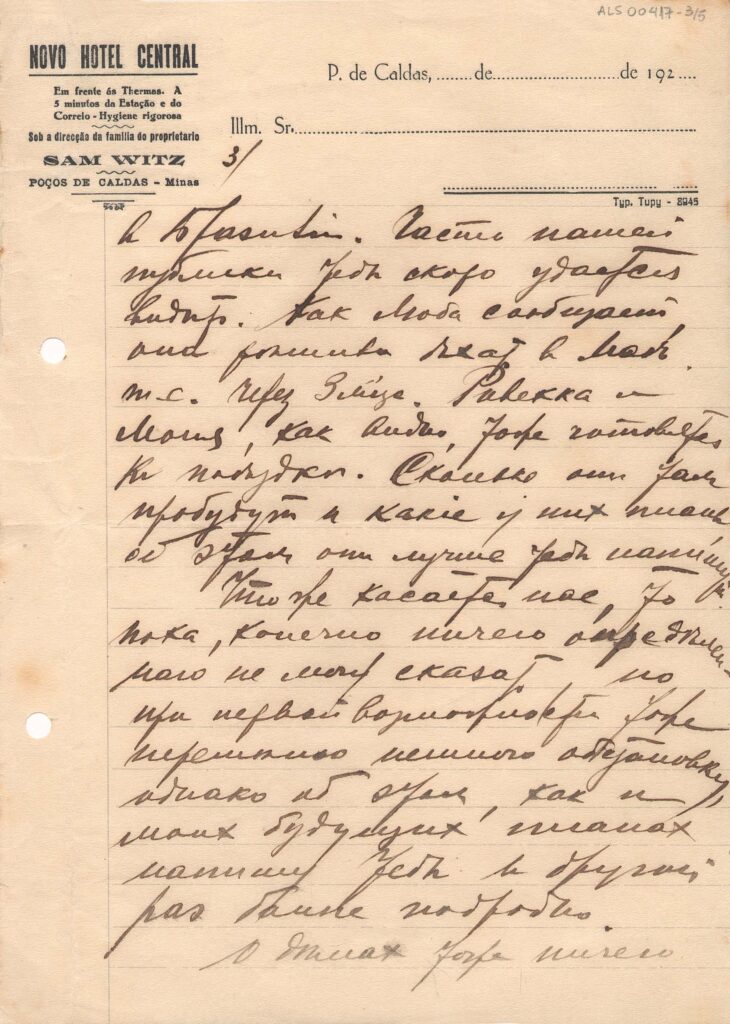 ALS 00417-3/5
NOVO HOTEL CENTRAL
Em frente ás Thermas. A
5 minutos da Estação e do
Correio - Hygiene rigorosa
Sob a direcção da familia do proprietario
SAM WITZ
POÇOS DE CALDAS - Minas
P. de Caldas, ........ de ............................ de 192 ....
Illm. Sr. ............................
Typ. Tupy - 8945
3/
в Бразилiи. Часть нашей
публики тебе скоро удастся
видеть. Как Люба сообщает,
она решила ехать в
т.е. через Ривекка и
как видно, тоже готовятся
к поездке. Сколько они там
пробудут и какiе у них планы
об этом они лучше тебе напишут.
Что же касается нас, то
пока, конечно ничего определен-
наго не могу сказать, но
при первой возможности тоже
переменю немного обстановку,
однако об этом, как и
моих будущих планах
напишу тебе в другой
раз более подробно.
О делах тоже ничего